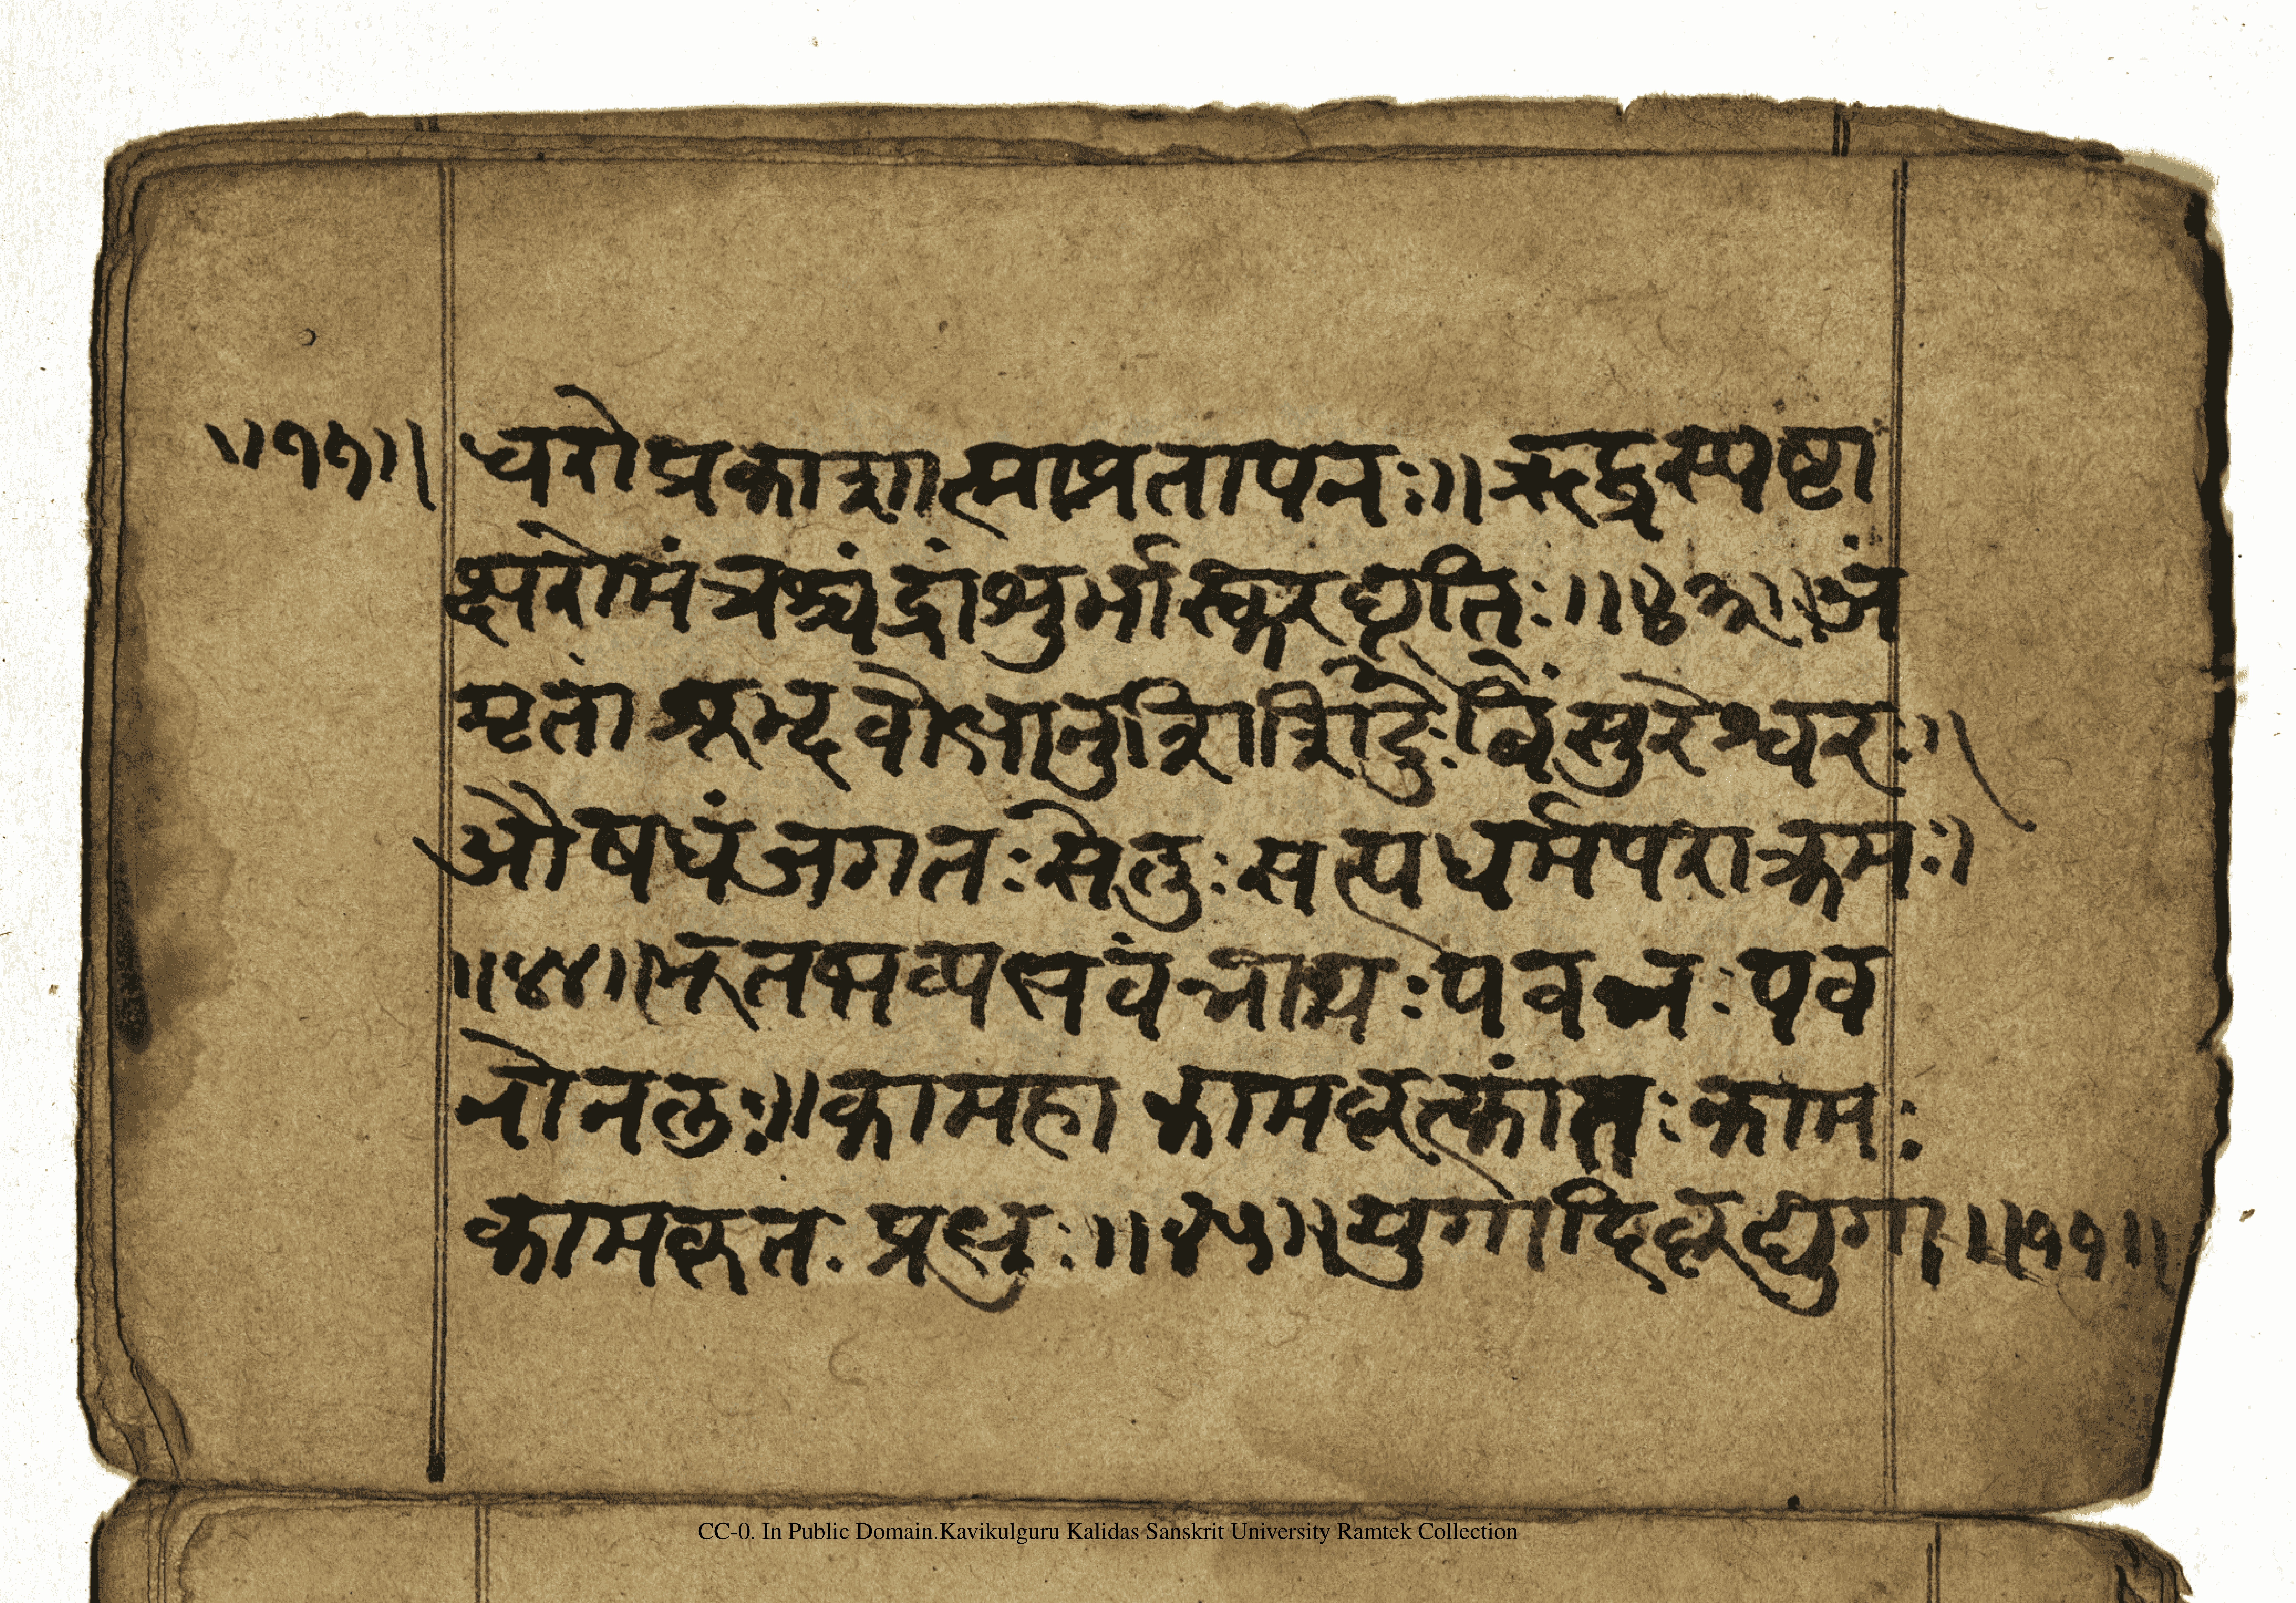 ॥१७॥ धरोप्रकाशात्माप्रतापनः॥ऋद्धस्पष्टा
क्षरोमंत्रश्चंद्रांशुर्भास्करद्युतिः॥४३॥अं
मृतां शूद्भवोभानुः बिंसुरेश्वरः॥
औषधंजगतःसेतुःसत्यधर्मपराक्रमः॥
॥४४॥भूतभव्यभवंनाथःपवनःपाव
नोनलः॥कामहा कामकृत्कांतःकामः
कामकृतः प्रभुः॥४५॥युगादिकृद्युगा ॥११॥
CC-0. In Public Domain.Kavikulguru Kalidas Sanskrit University Ramtek Collection